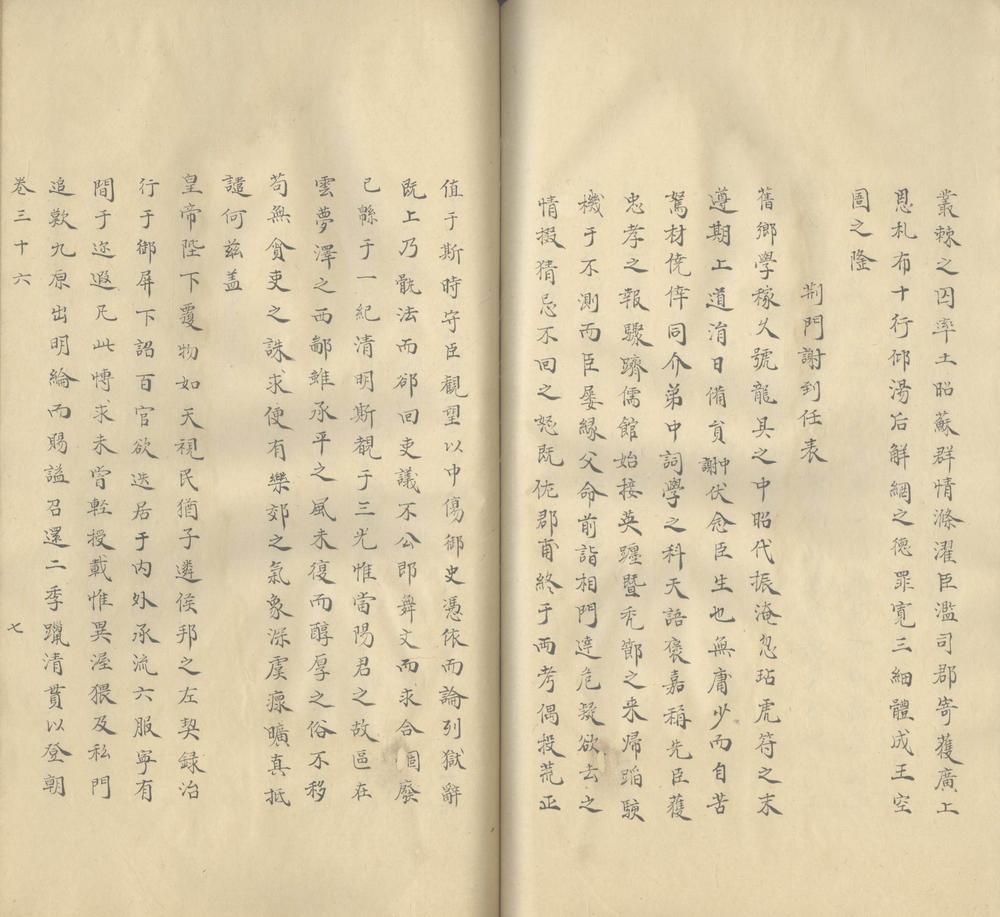 叢棘之囚率土昭蘇群情滌濯臣濫司郡寄獲廣上
恩札布十行仰湯后解網之德罪寬三細體成王空
圄之隆
荆門謝到任表
舊鄉學稼久號龍具之中昭代振淹忽玷虎符之末
遵期上道消日備員中謝伏念臣生也無庸少而自苦
駑材僥倖同介弟中詞學之科天語褒嘉稱先臣獲
忠孝之報驟躋儒館始接英躔暨秃節之来歸蹈駭
機于不測而臣屡緣父命前詣相門達危疑欲去之
情掇猜忌不回之怒既佐郡甫終于两考偶投荒正
值于斯時守臣觀望以中傷御史憑依而論列獄辭
既上乃骫法而郤回吏議不公即舞文而求合固廢
已緜于一紀清明斯覩于三光惟當陽君之故區在
雲夢澤之西鄙雖承平之風未復而醇厚之俗不移
苟無貪吏之誅求便有樂郊之氣象深虞瘝曠真抵
譴何兹盖
皇帝陛下覆物如天視民猶子遴侯邦之左契録治
行于御屏下詔百官欲迭居于内外承流六服寧有
間于迩遐凡此愽求未甞輕授載惟異渥猥及私門
追歎九原出明綸而賜謚召還二季躐清貫以登朝
卷三十六
七